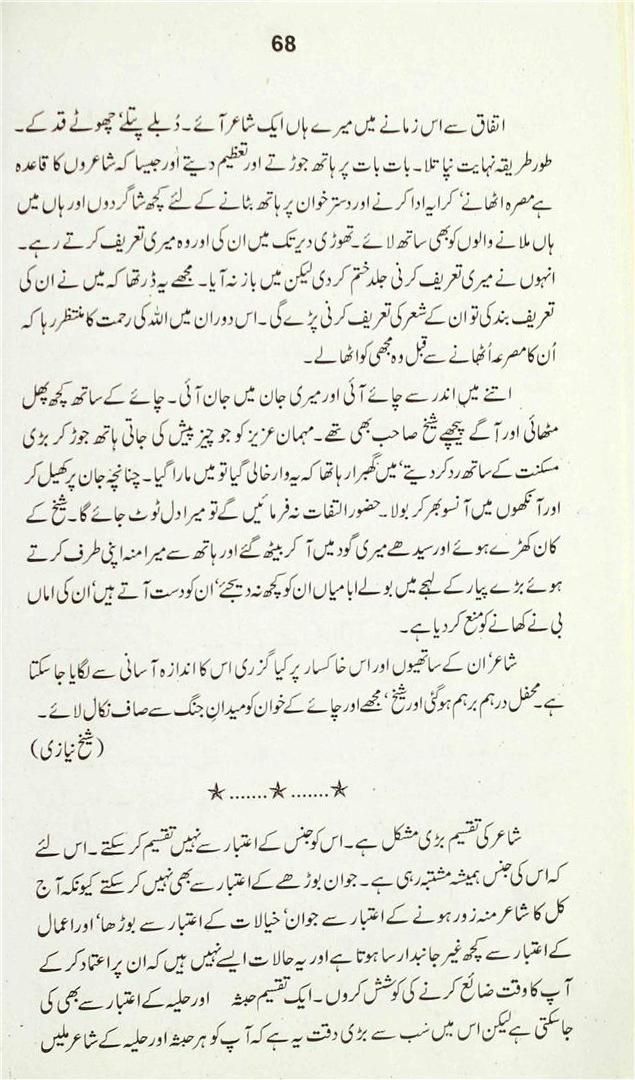 68
اتفاق سے اس زمانے میں میرے ہاں ایک شاعر آئے۔ دُبلے پتلے، چھوٹے قد کے۔
طور طریقہ نہایت نپا تلا۔ بات بات پر ہاتھ جوڑتے اور تعظیم دیتے اور جیسا کہ شاعروں کا قاعدہ
ہے مصرہ اٹھانے، کرایہ ادا کرنے اور دستر خوان پر ہاتھ بٹانے کے لئے کچھ شاگردوں اور ہاں میں
ہاں ملانے والوں کو بھی ساتھ لائے۔ تھوڑی دیر تک میں ان کی اور وہ میری تعریف کرتے رہے۔
انہوں نے میری تعریف کرنی جلد ختم کر دی لیکن میں باز نہ آیا۔ مجھے یہ ڈر تھا کہ میں نے ان کی
تعریف بند کی تو ان کے شعر کی تعریف کرنی پڑے گی۔ اس دوران میں اللہ کی رحمت کا منتظر رہا کہ
اُن کا مصرعہ اُٹھانے سے قبل وہ مجھی کو اٹھالے۔
اتنے میں اندر سے چائے آئی اور میری جان میں جان آئی۔ چائے کے ساتھ کچھ پھل
مٹھائی اور آگے پیچھے شیخ صاحب بھی تھے۔ مہمان عزیز کو جو چیز پیش کی جاتی ہاتھ جوڑ کر بڑی
مسکنت کے ساتھ رد کر دیتے، میں گھبرا رہا تھا کہ یہ وار خالی گیا تو میں مارا گیا۔ چنانچہ جان پر کھیل کر
اور آنکھوں میں آنسو بھر کر بولا۔ حضور التفات نہ فرمائیں گے تو میرا دل ٹوٹ جائے گا۔ شیخ کے
کان کھڑے ہوئے اور سیدھے میری گود میں آ کر بیٹھ گئے اور ہاتھ سے میرا منہ اپنی طرف کرتے
ہوئے بڑے پیار کے لہجے میں بولے ابا میاں ان کو کچھ نہ دیجئے، ان کو دست آتے ہیں، ان کی اماں
بی نے کھانے کو منع کر دیا ہے۔
شاعر، ان کے ساتھیوں اور اس خاکسار پر کیا گزری اس کا اندازہ آسانی سے لگایا جا سکتا
ہے۔ محفل درہم برہم ہو گئی اور شیخ، مجھے اور چائے کے خوان کو میدانِ جنگ سے صاف نکال لائے۔
(شیخ نیازی)
★.......★.......★
شاعر کی تقسیم بڑی مشکل ہے۔ اس کو جنس کے اعتبار سے نہیں تقسیم کر سکتے۔ اس لئے
کہ اس کی جنس ہمیشہ مشتبہ رہی ہے۔ جوان بوڑھے کے اعتبار سے بھی نہیں کر سکتے کیونکہ آج
کل کا شاعر منہ زور ہونے کے اعتبار سے جوان، خیالات کے اعتبار سے بوڑھا، اور اعمال
کے اعتبار سے کچھ غیر جانبدار سا ہوتا ہے اور یہ حالات ایسے نہیں ہیں کہ ان پر اعتماد کر کے
آپ کا وقت ضائع کرنے کی کوشش کروں۔ ایک تقسیم جثہ اور حلیہ کے اعتبار سے بھی کی
جا سکتی ہے لیکن اس میں سب سے بڑی دقت یہ ہے کہ آپ کو ہر جثہ اور حلیہ کے شاعر ملیں